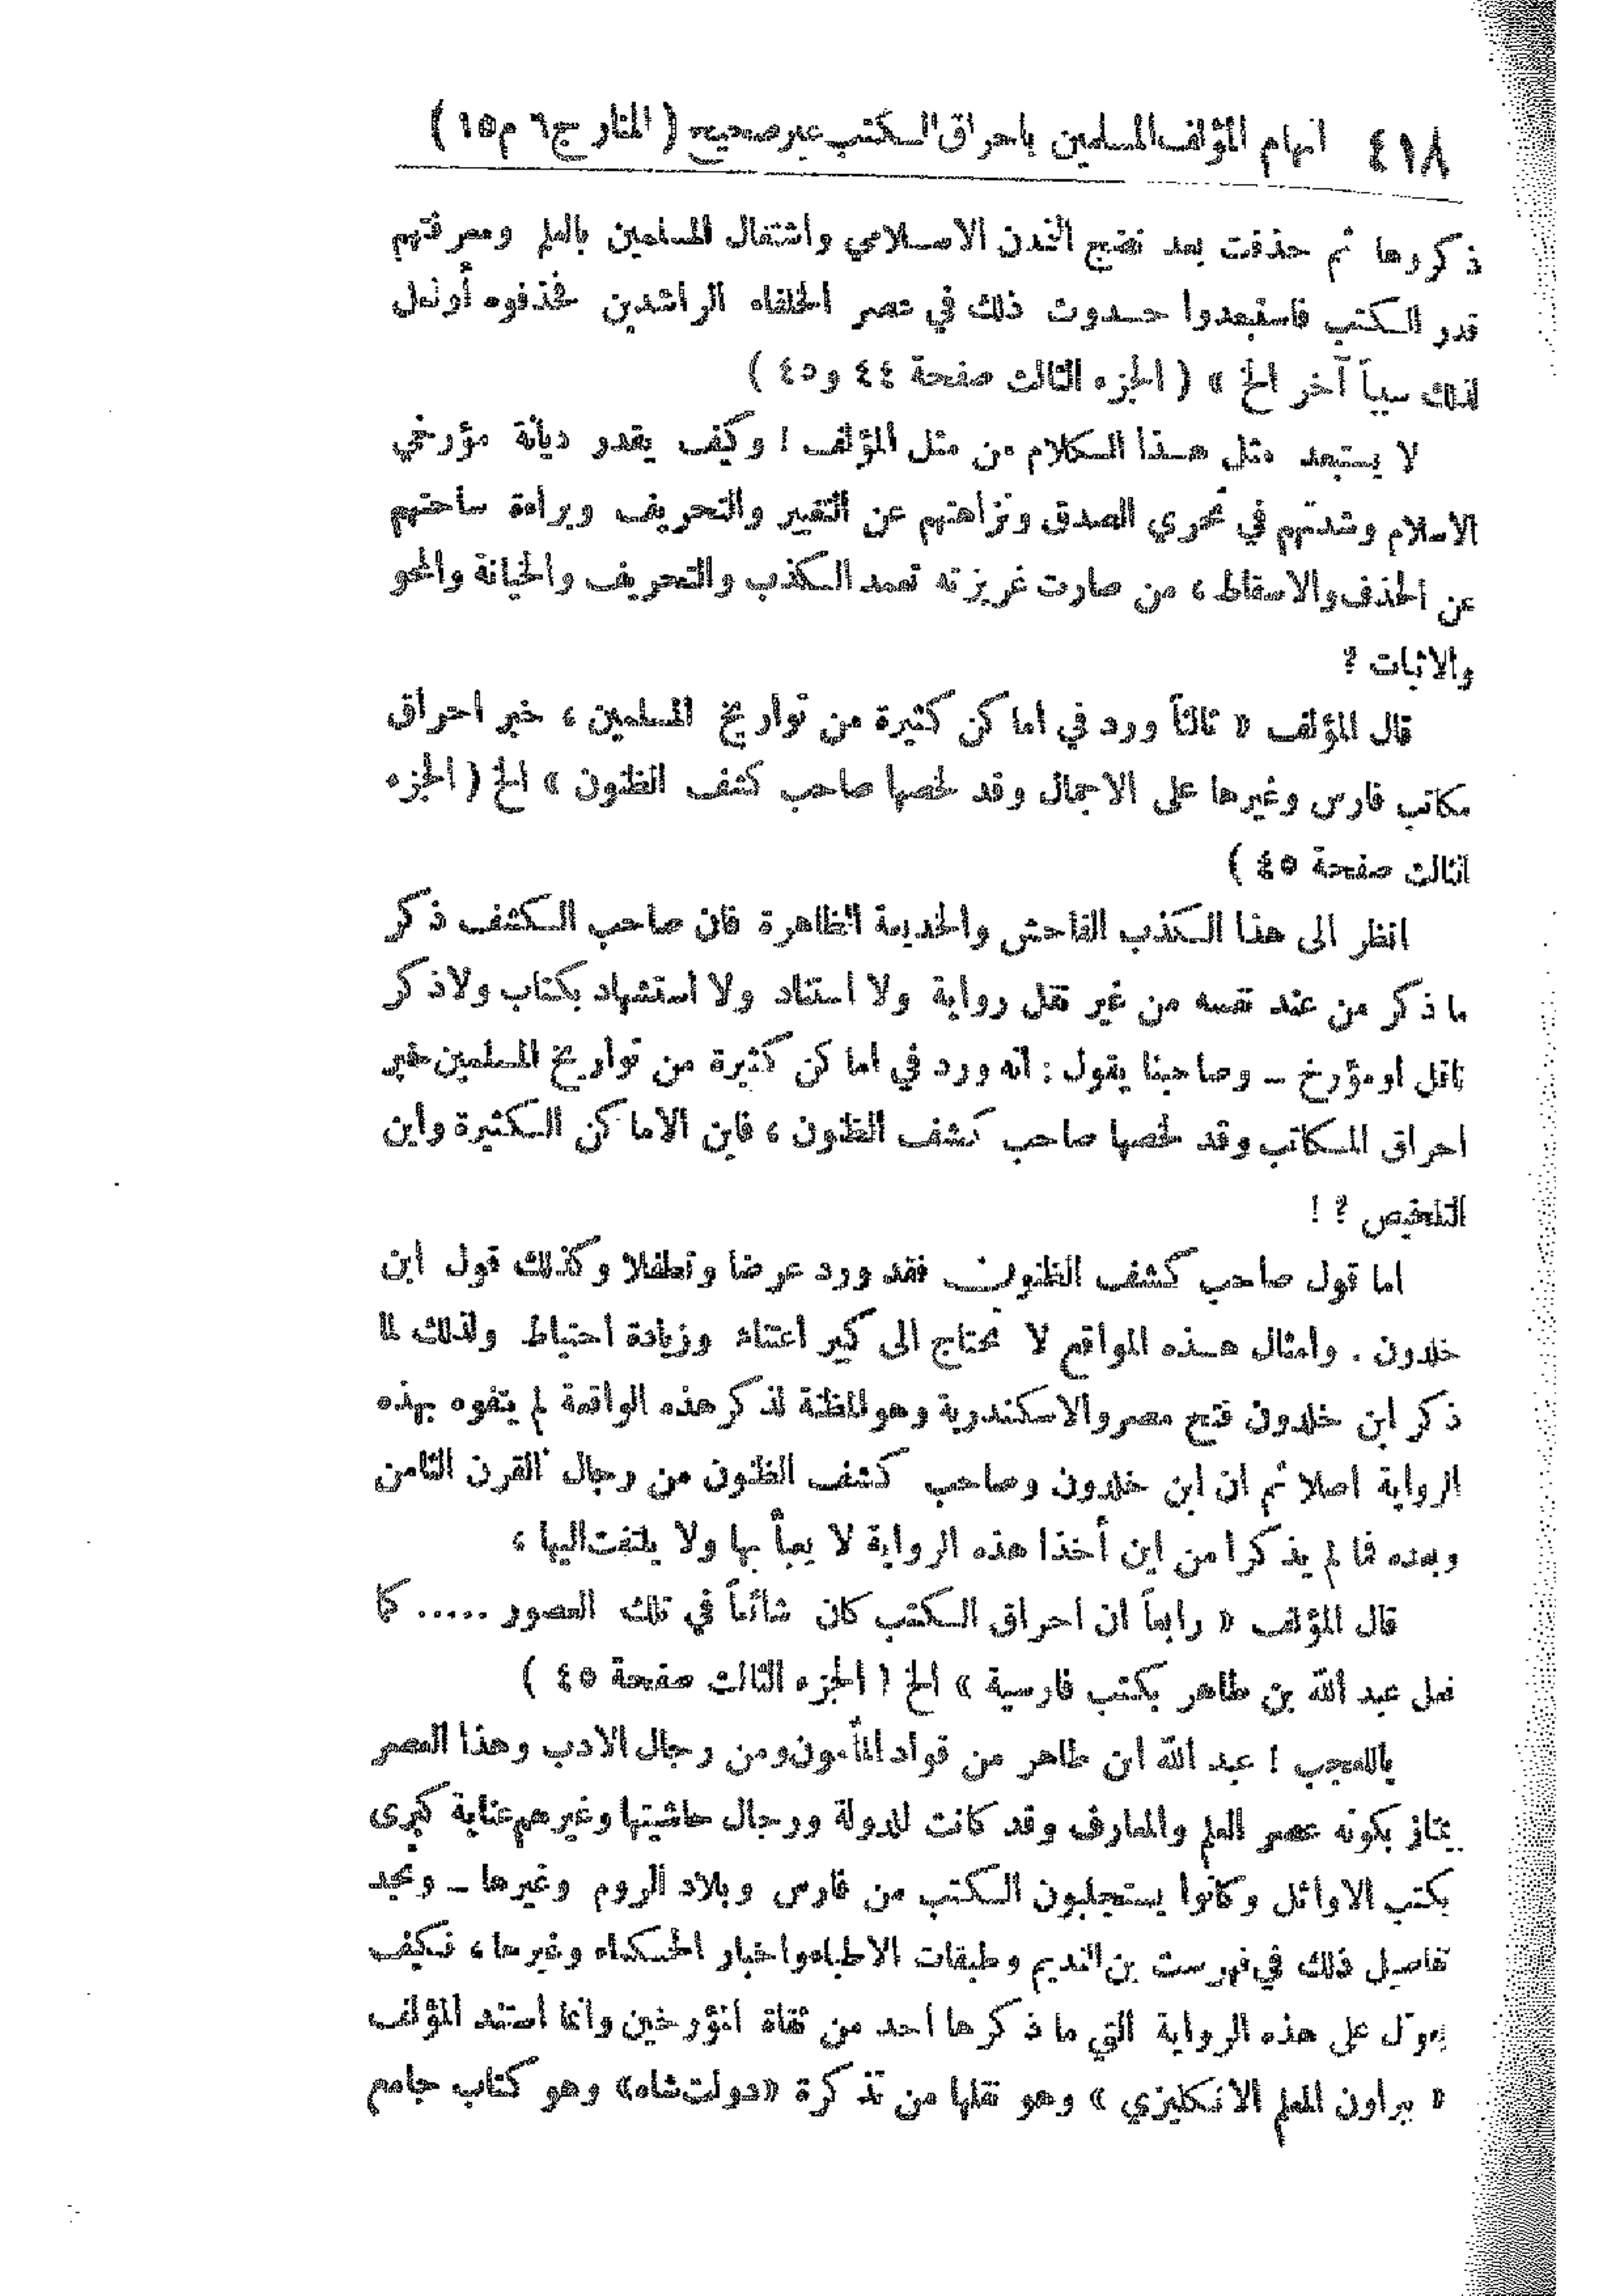 ٤١٨ اتهام المؤلف المسلمين باحراق الكتب غير صحيح ( المنار ج٦ م١٥ )
ذكروها ثم حذفت بعد نضج التمدن الاسلامي واشتغال المسلمين بالعلم ومعرفتهم
قدر الكتب فاستبعدوا حدوث ذلك في عصر الخلفاء الراشدين فحذفوه أو لعل
لذلك سبباً آخر الخ » ( الجزء الثالث صفحة ٤٤ و٤٥ )
لا يستبعد مثل هذا الكلام من مثل المؤلف ! وكيف يقدر ديانة مؤرخي
الاسلام وشدتهم في تحري الصدق ونزاهتهم عن التغيير والتحريف وبراءة ساحتهم
عن الحذف والاسقاط ، من صارت غريزته تعمد الكذب والتحريف والخيانة والمحو
والاثبات ?
قال المؤلف « ثالثاً ورد في اماكن كثيرة من تواريخ المسلمين ، خبر احراق
مكاتب فارس وغيرها على الاجمال وقد لخصها صاحب كشف الظنون » الخ ( الجزء
الثالث صفحة ٤٥ )
انظر الى هذا الكذب الفاحش والخديعة الظاهرة فان صاحب الكشف ذكر
ما ذكر من عند نفسه من غير نقل رواية ولا استناد ولا استشهاد بكتاب ولا ذكر
ناقل او مؤرخ ــ وصاحبنا يقول : انه ورد في اماكن كثيرة من تواريخ المسلمين خبر
احراق المكاتب وقد لخصها صاحب كشف الظنون ، فاين الاماكن الكثيرة واين
التلخيص ? !
اما قول صاحب كشف الظنون فقد ورد عرضا وتطفلا وكذلك قول ابن
خلدون . وامثال هذه المواقع لا تحتاج الى كبير اعتناء وزيادة احتياط ولذلك لما
ذكر ابن خلدون فتح مصر والاسكندرية وهو المظنة لذكر هذه الواقعة لم يتفوه بهذه
الرواية اصلا ثم ان ابن خلدون وصاحب كشف الظنون من رجال القرن الثامن
وبعده فما لم يذكرا من اين أخذا هذه الرواية لا يعبأ بها ولا يلتفت اليها ،
قال المؤلف « رابعاً ان احراق الكتب كان شائعاً في تلك العصور ..... كما
فعل عبد الله بن طاهر بكتب فارسية » الخ ( الجزء الثالث صفحة ٤٥ )
ياللعجب ! عبد الله ابن طاهر من قواد المأمون ومن رجال الادب وهذا العصر
يمتاز بكونه عصر العلم والمعارف وقد كانت للدولة ورجال حاشيتها وغيرهم عناية كبرى
بكتب الاوائل وكانوا يستجلبون الكتب من فارس وبلاد الروم وغيرها ــ وتجد
تفاصيل ذلك في فهرست بن النديم وطبقات الاطباء واخبار الحكماء وغيرها ، فكيف
يعوّل على هذه الرواية التي ما ذكرها أحد من ثقاة المؤرخين وانما استند المؤلف
« ببراون المعلم الانكليزي » وهو نقلها من تذكرة «دولت شاه» وهو كتاب جامع